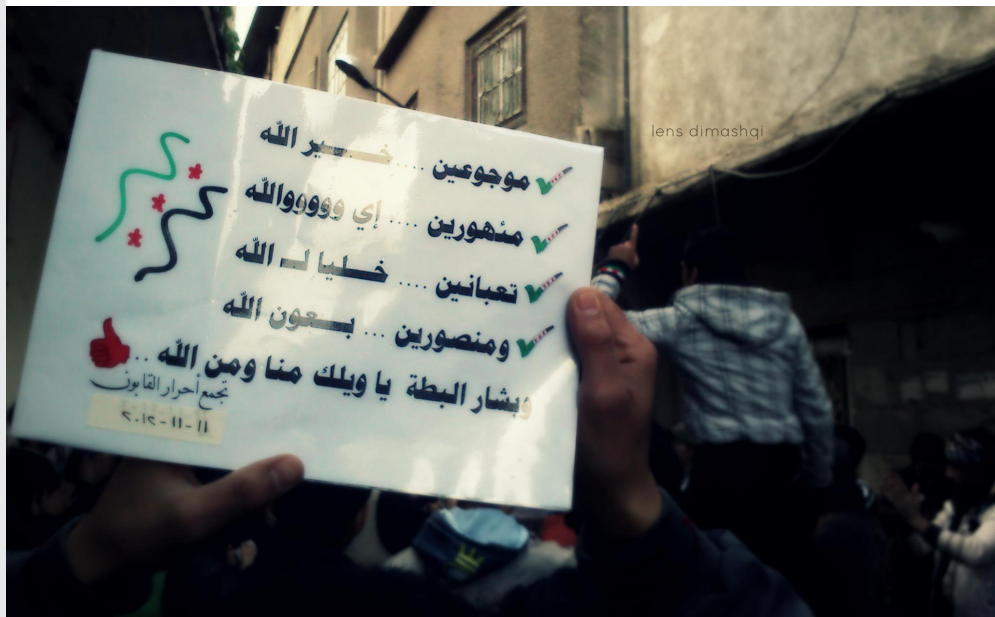 lens dimashqi
موجوعين .... خـــير الله
منهورين .... إي وووووالله
تعبانين .... خــليا لــ الله
ومنصورين ... بــعون الله
وبشار البطة يا ويلك منا ومن الله ..
تجمع أحرار القابون
١١-١١-٢٠١٢